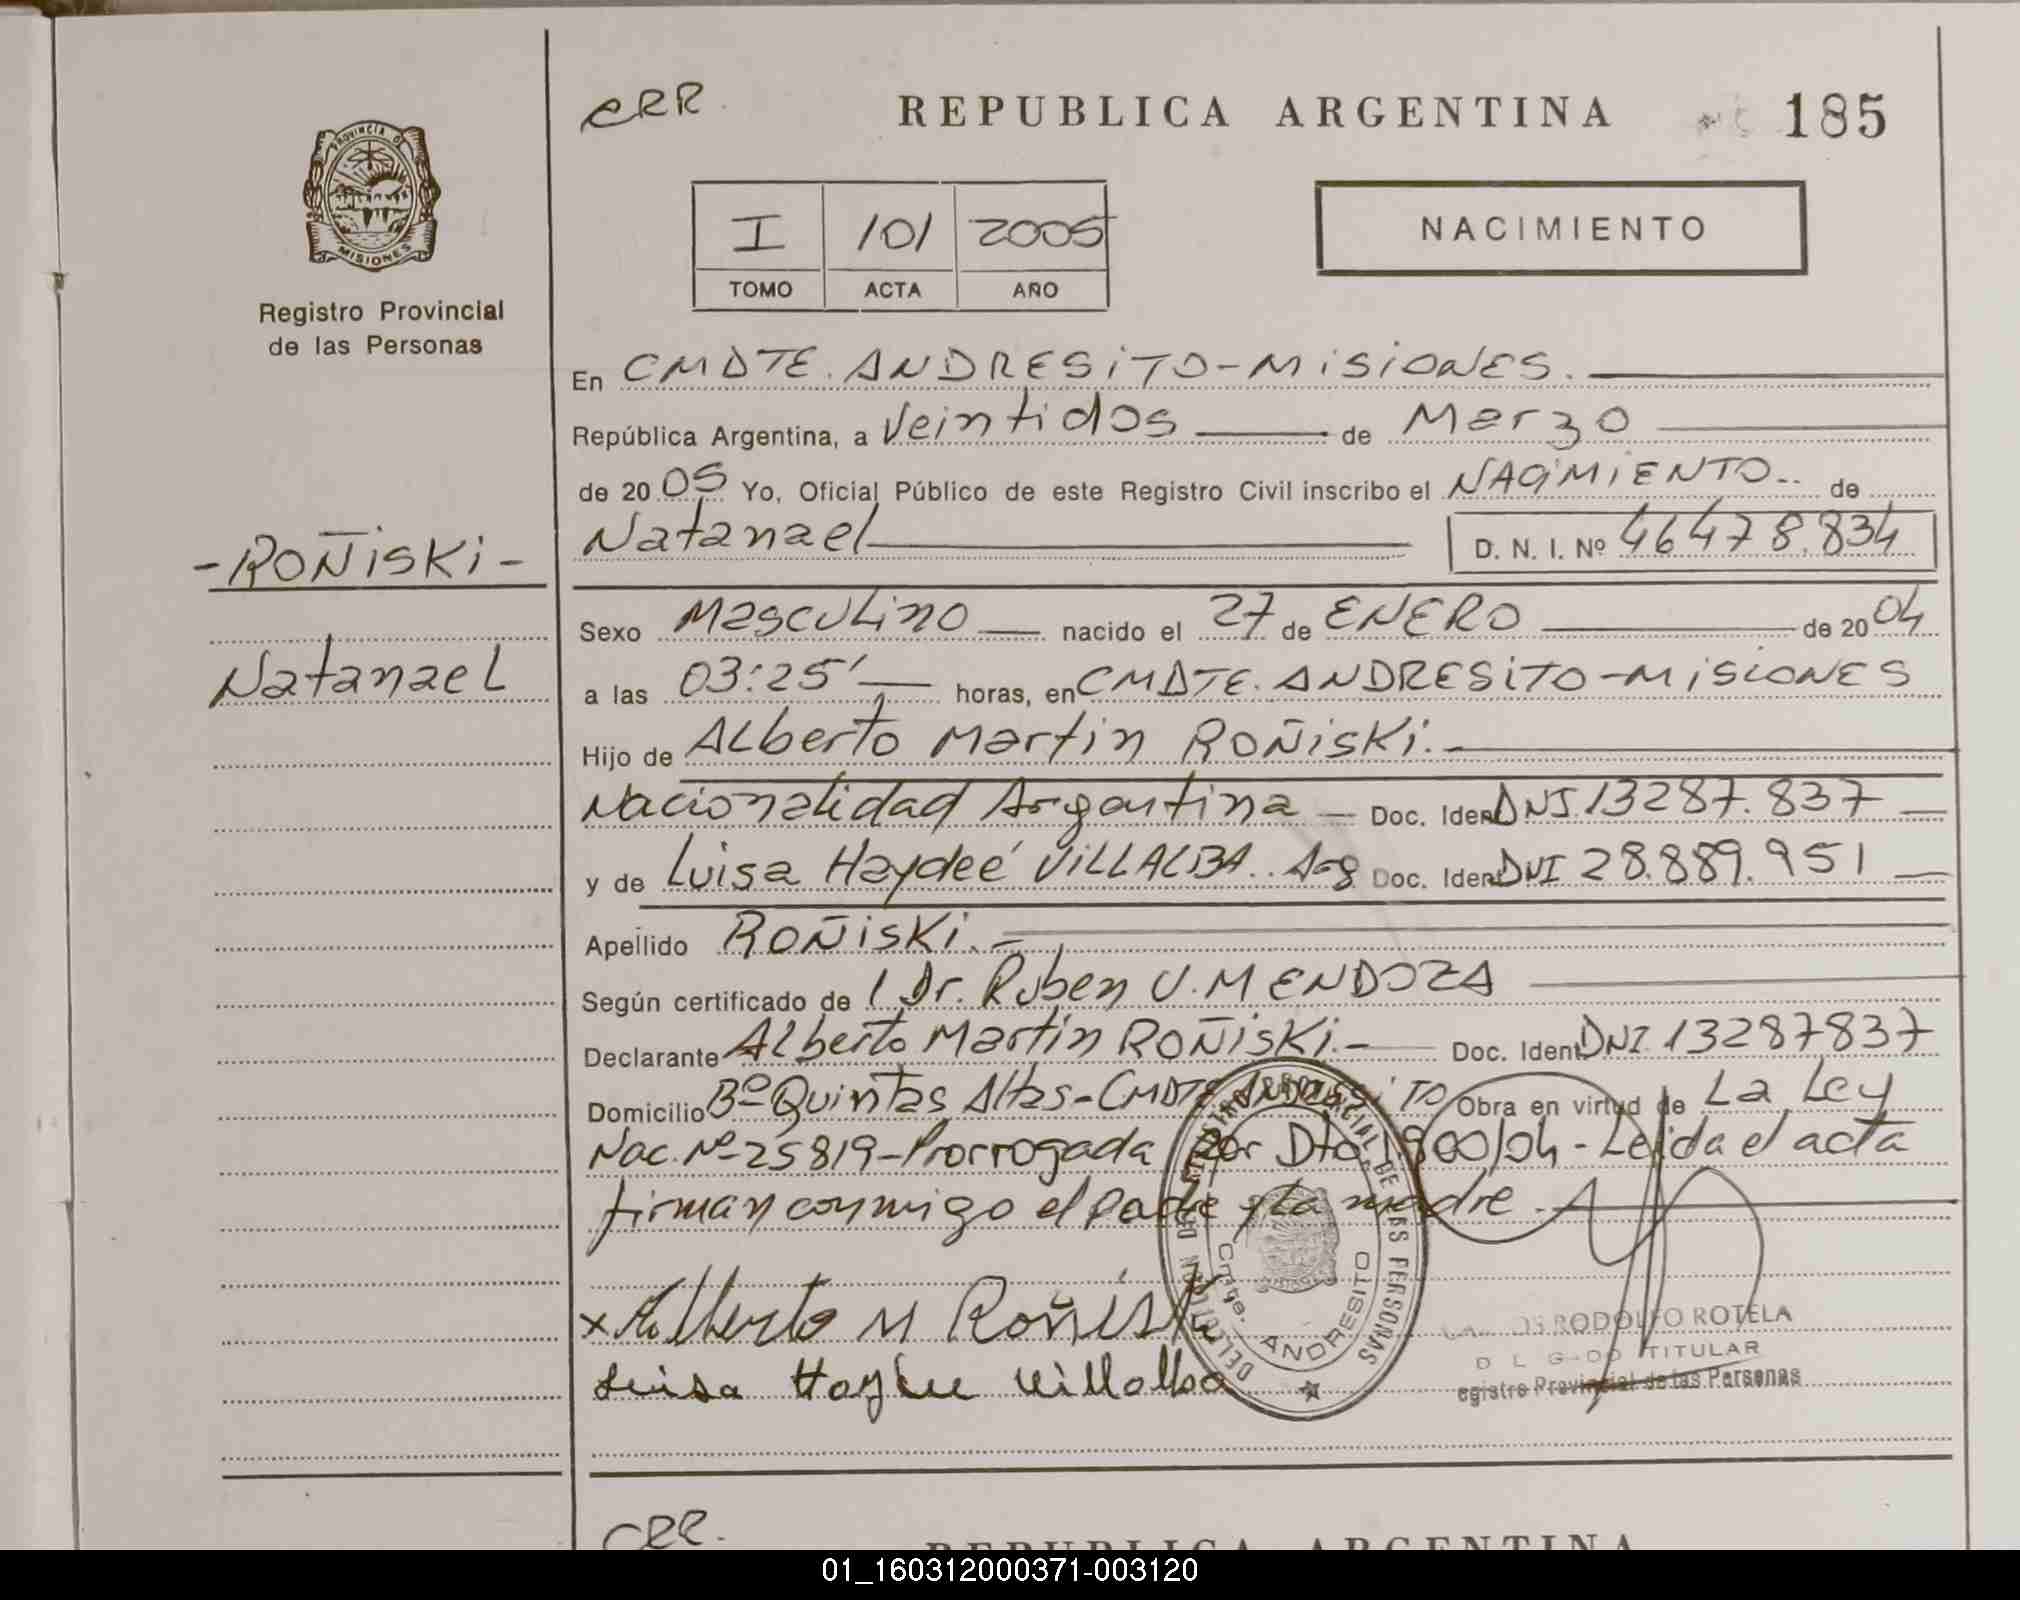 CRR.
REPUBLICA ARGENTINA
185
PROVINCIA DE
MISIONES
Registro Provincial
de las Personas
I 101 2005
TOMO ACTA AÑO
NACIMIENTO
En CMDTE. ANDRESITO-MISIONES.
República Argentina, a Veintidos de Marzo
de 2005 Yo, Oficial Público de este Registro Civil inscribo el NACIMIENTO.. de
Natanael D. N. I. Nº 46478.834
-ROÑISKI-
Natanael
Sexo Masculino nacido el 27 de ENERO de 2004
a las 03:25' horas, en CMDTE. ANDRESITO-MISIONES
Hijo de Alberto Martin ROÑISKI.-
Nacionalidad Argentina - Doc. Ident DNI.13287.837
y de Luisa Haydeé VILLALBA.. Arg Doc. Ident DNI 28.889.951
Apellido ROÑISKI.-
Según certificado de l Dr. Ruben U. MENDOZA
Declarante Alberto Martin ROÑISKI.- Doc. Ident DNI.13287837
Domicilio Bº Quintas Altas-CMDTE ANDRESITO Obra en virtud de La Ley
Nac. Nº 25819-Prorrogada por Dto.1.900/04-Leida el acta
firman conmigo el Padre y La madre.-
x Alberto M Roñiski
Luisa Haydee Villalba
DELEGACION DEL REGISTRO PROVINCIAL DE LAS PERSONAS
Cmte. ANDRESITO
OS RODOLFO ROTELA
TITULAR
egistro Provincial de las Personas
CRR.
REPUBLICA ARGENTINA
01_160312000371-003120